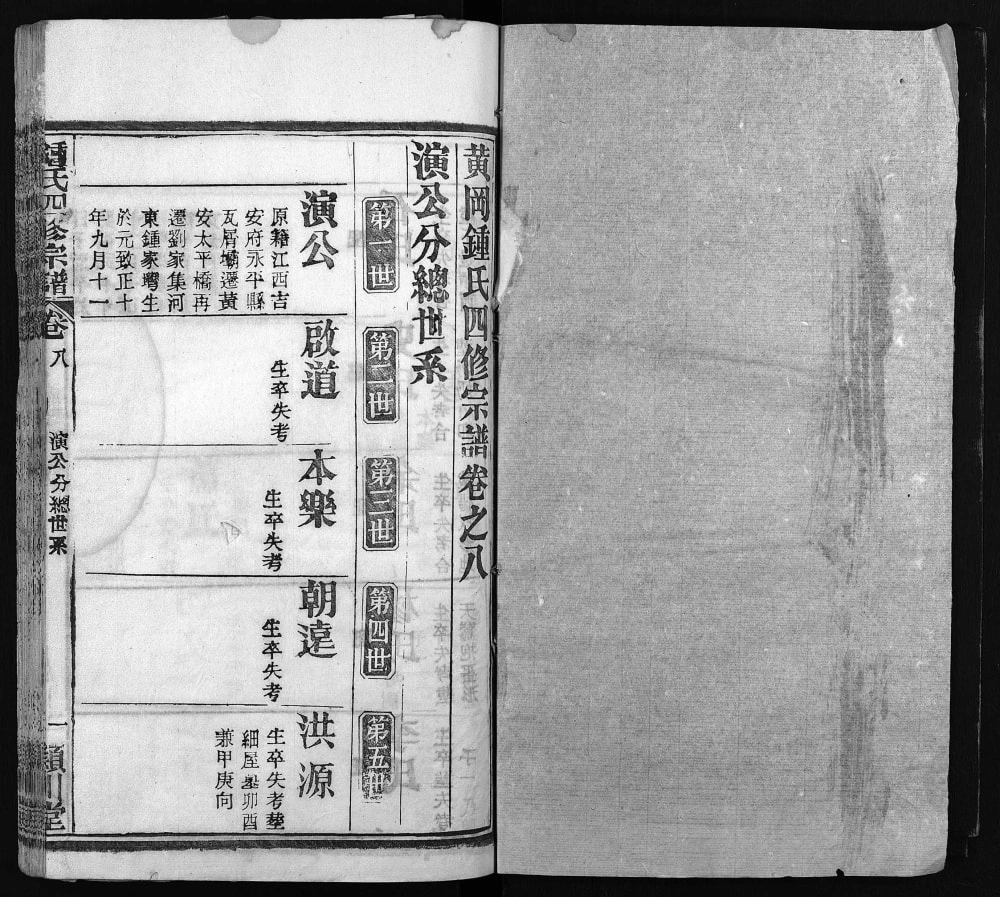 黄岡鍾氏四修宗譜卷之八
演公分總世系
第一世
第二世
第三世
第四世
第五世
演公
原籍江西吉
安府永平縣
瓦屑壩遷黄
安太平橋再
遷劉家集河
東鍾家塆生
於元致正十
年九月十一
啟道
生卒失考
本樂
生卒失考
朝遠
生卒失考
洪源
生卒失考塟
細屋卯酉
兼甲庚向
鍾氏四修宗譜
卷八
演公分總世系
一
潁川堂